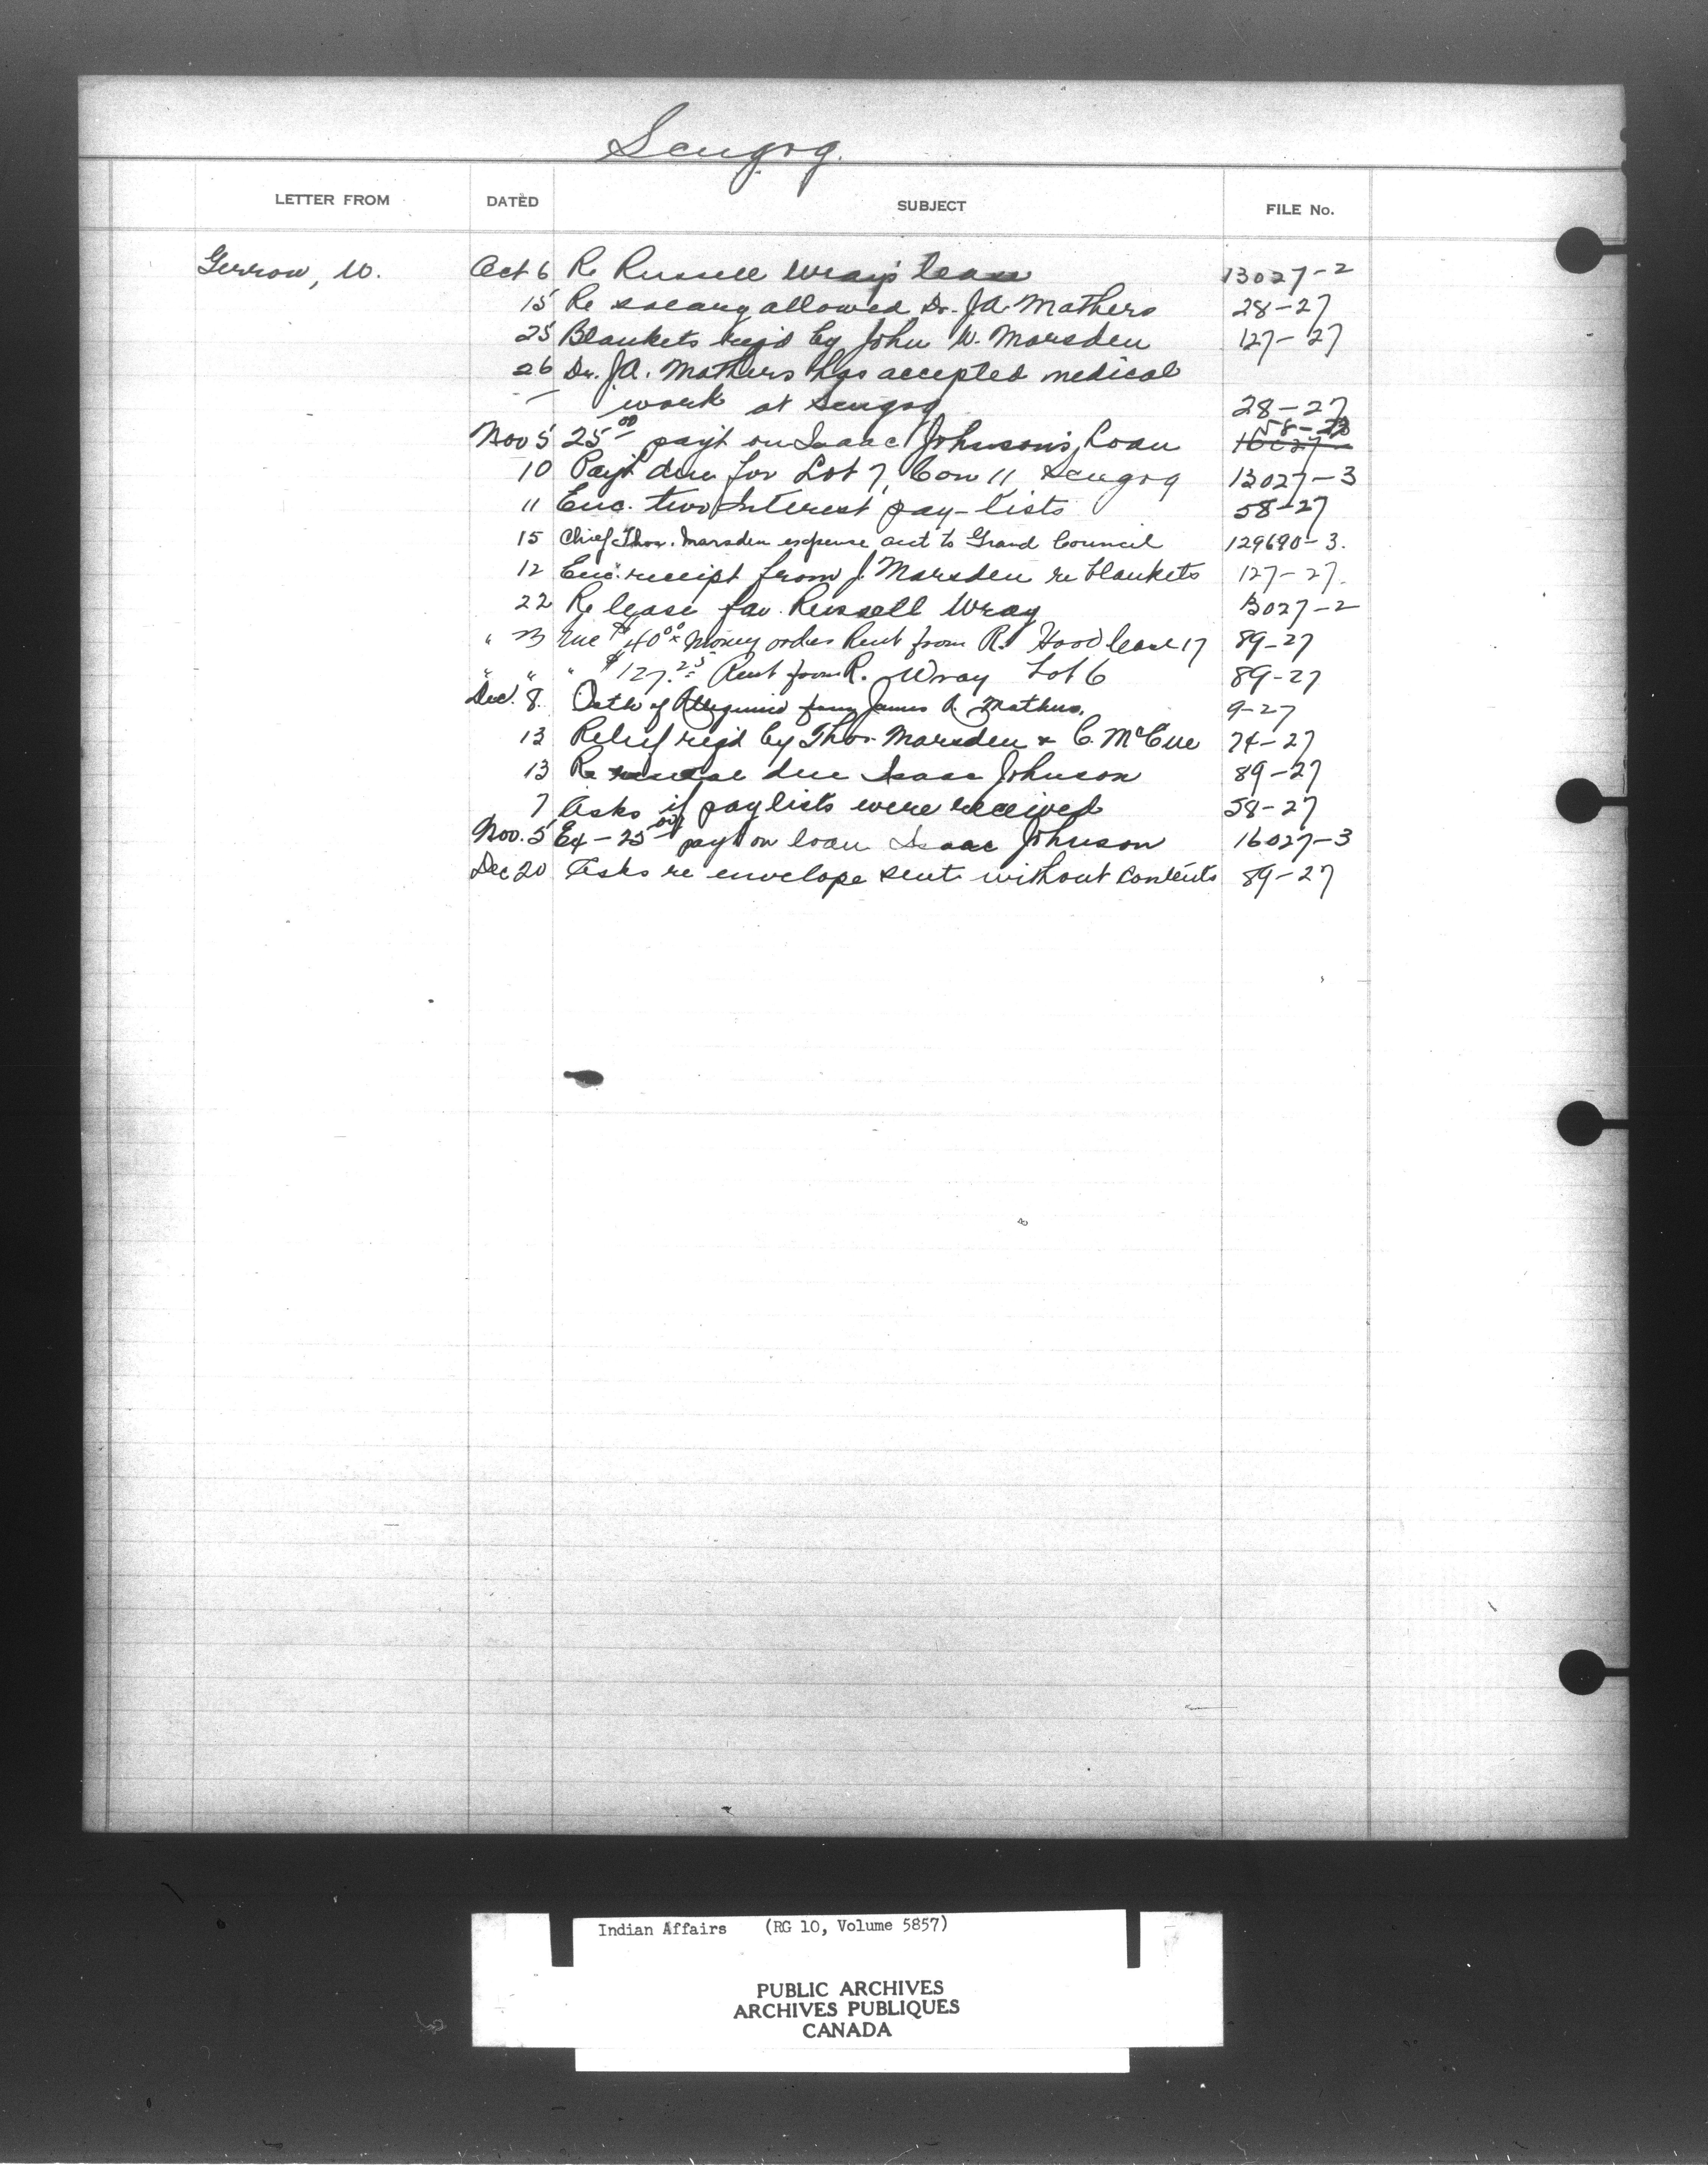 Scugog.
LETTER FROM DATED SUBJECT FILE No.
Gerrow, W. Oct 6 Re Russell Wray's lease 13027-2
15 Re salary allowed Dr. J.A. Mathers 28-27
25 Blankets req'd by John W. Marsden 127-27
26 Dr. J.A. Mathers has accepted medical
work at Scugog 28-27
58-27
Nov 5 25 00 pay't on Isaac Johnson's Loan 16027
10 Pay't due for Lot 7, Con 11 Scugog 13027-3
11 Enc. two Interest pay-lists 58-27
15 Chief Thos. Marsden expense acct to Grand Council 129690-3.
12 Enc. receipt from J. Marsden re blankets 127-27.
22 Re lease fav. Russell Wray 13027-2
" 23 Enc $40 00 Money order Rent from R. Hood lease 17 89-27
" " " $127.25 Rent from R. Wray Lot 6 89-27
Dec. 8. Oath of Allegiance from James A. Mathers. 9-27
13 Relief req'd by Thos. Marsden & C. McCue 74-27
13 Re due Isaac Johnson 89-27
7 Asks if paylists were received 58-27
Nov. 5 Ex - 25 00 pay't on loan Isaac Johnson 16027-3
Dec 20 Asks re envelope sent without contents 89-27
Indian Affairs (RG 10, Volume 5857)
PUBLIC ARCHIVES
ARCHIVES PUBLIQUES
CANADA